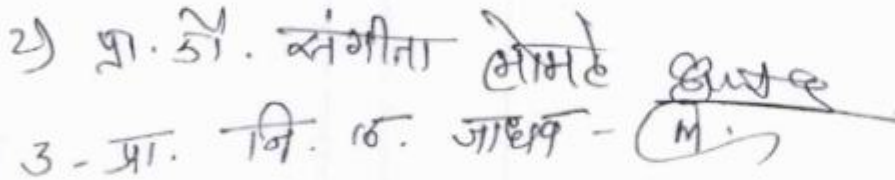 २) प्रा. डॉ. संगीता भोमले
३ - प्रा. नि. ल. जाधव -